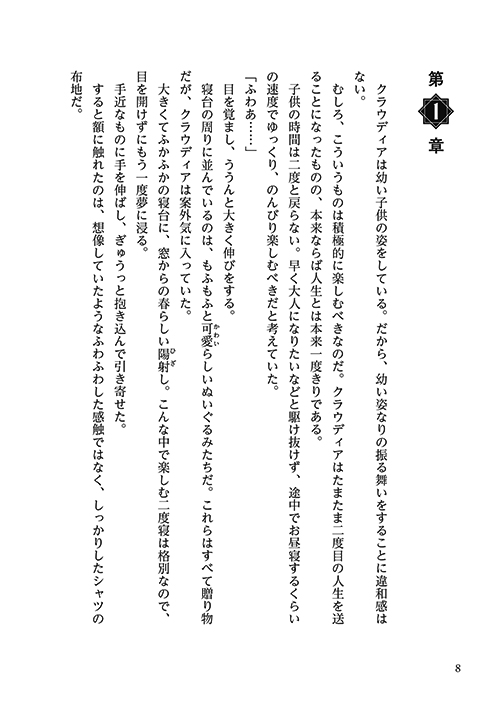 第1章
クラウディアは幼い子供の姿をしている。だから、幼い姿なりの振る舞いをすることに違和感は
ない。
むしろ、こういうものは積極的に楽しむべきなのだ。クラウディアはたまたま二度目の人生を送
ることになったものの、本来ならば人生とは本来一度きりである。
子供の時間は二度と戻らない。早く大人になりたいなどと駆け抜けず、途中でお昼寝するくらい
の速度でゆっくり、のんびり楽しむべきだと考えていた。
「ふわあ……」
目を覚まし、ううんと大きく伸びをする。
寝台の周りに並んでいるのは、もふもふと可愛らしいぬいぐるみたちだ。これらはすべて贈り物
だが、クラウディアは案外気に入っていた。
大きくてふかふかの寝台に、窓からの春らしい陽射し。こんな中で楽しむ二度寝は格別なので、
目を開けずにもう一度夢に浸る。
手近なものに手を伸ばし、ぎゅうっと抱き込んで引き寄せた。
すると額に触れたのは、想像していたようなふわふわした感触ではなく、しっかりしたシャツの
布地だ。
8